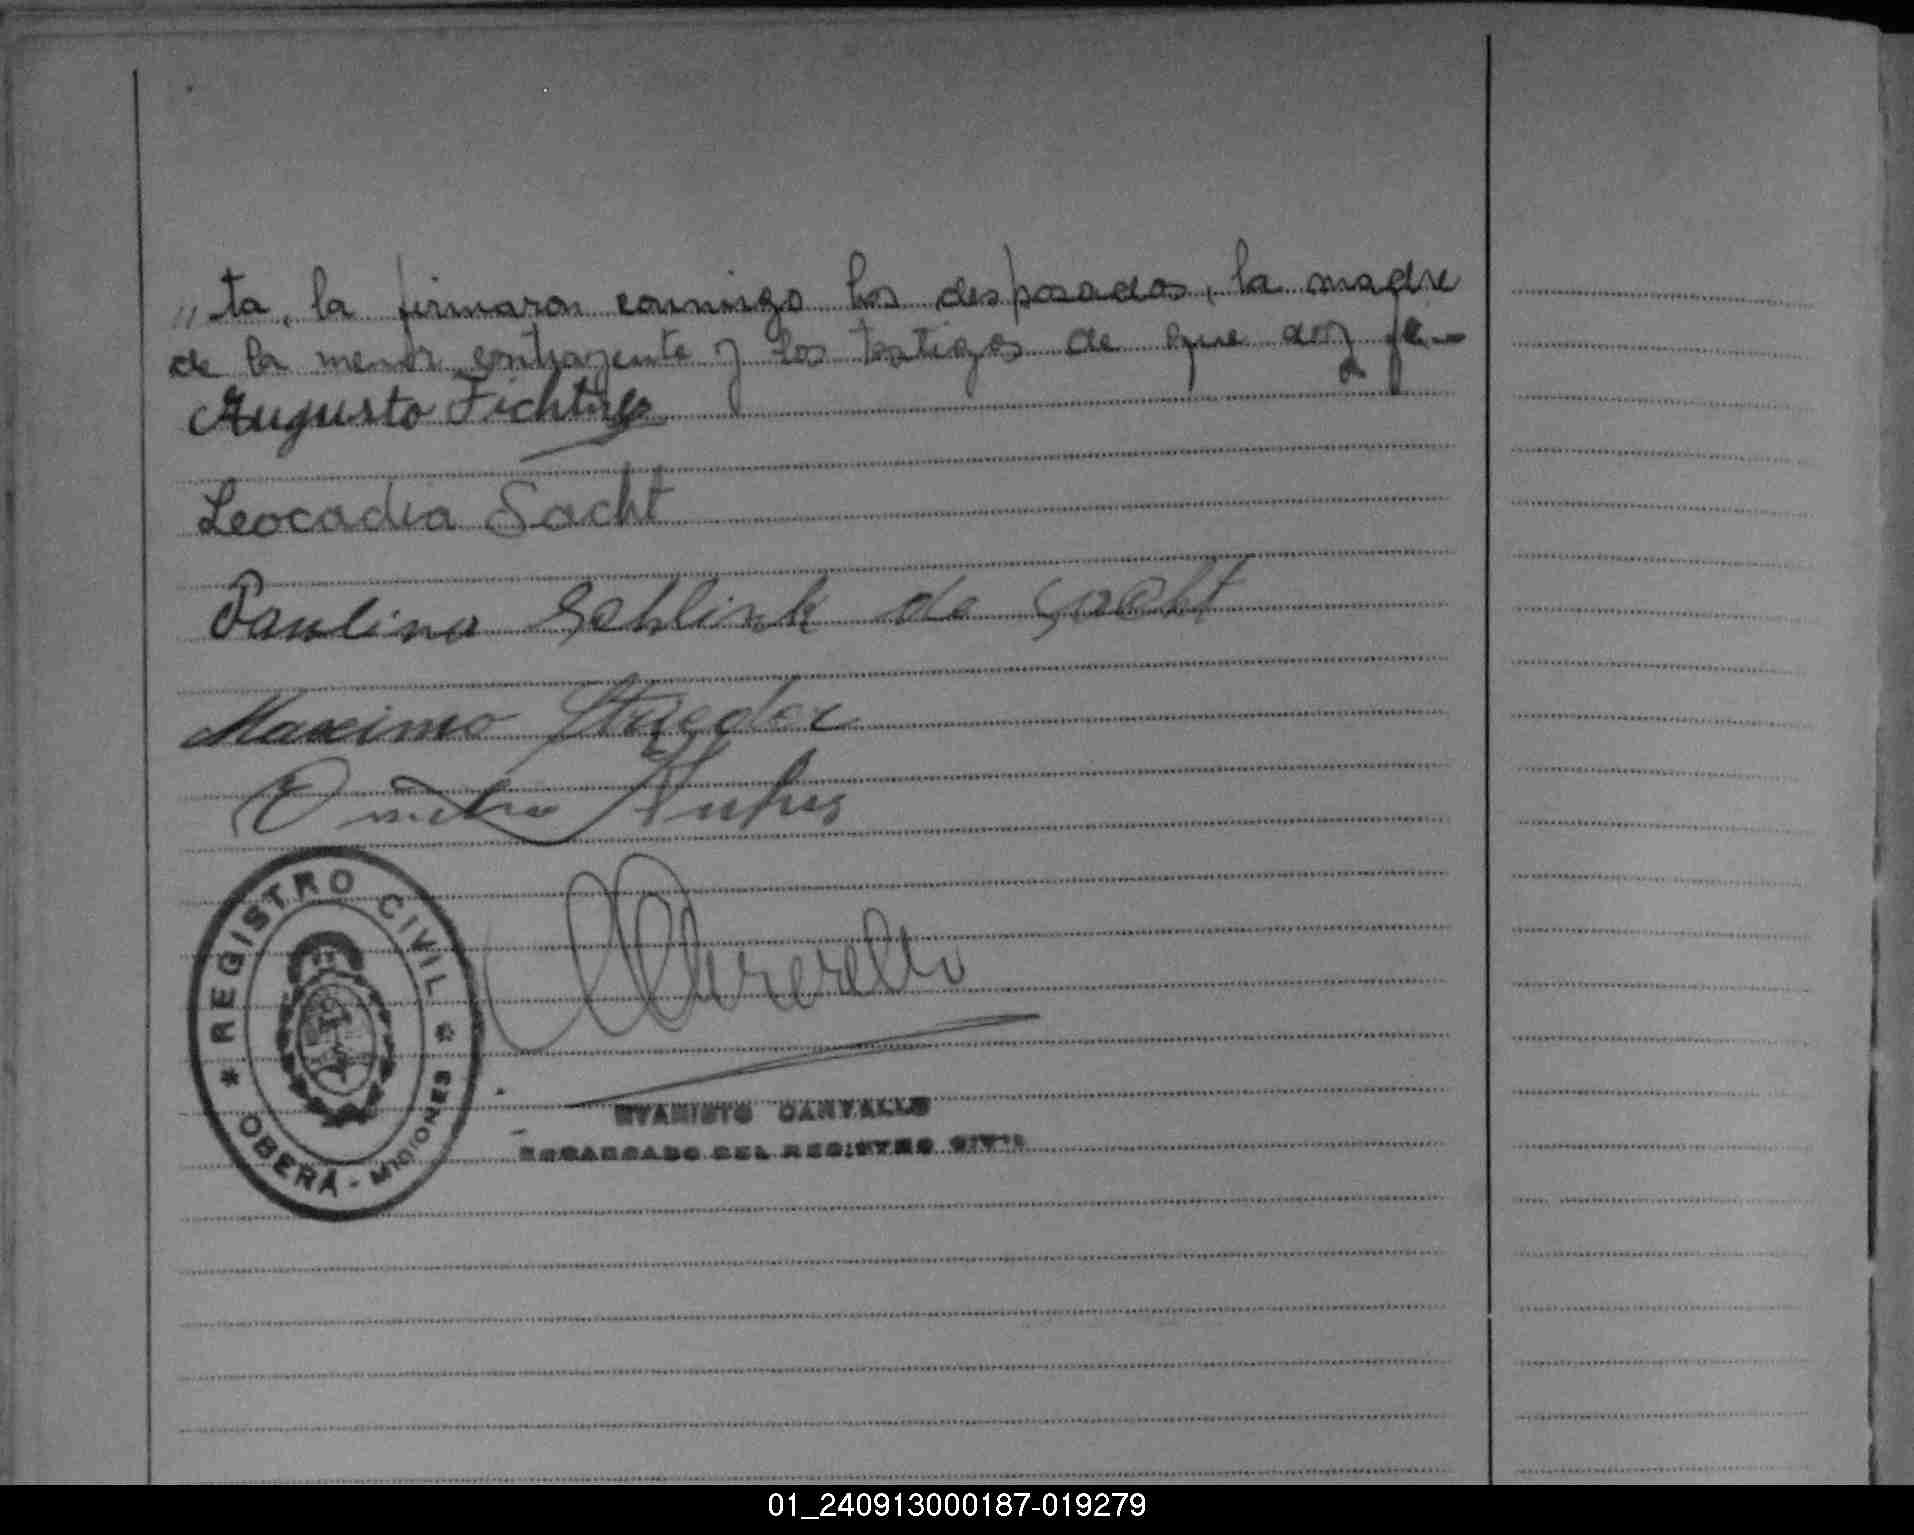 „ta, la firmaron conmigo los desposados, la madre
de la menor contrayente y los testigos de que doy fe.—
Augusto Fichtner
Leocadia Sacht
Paulina Schlink de Sacht
Maximo Staeder
REGISTRO CIVIL
* OBERÁ - MISIONES *
ENCARGADO DEL REGISTRO CIVIL
01_240913000187-019279